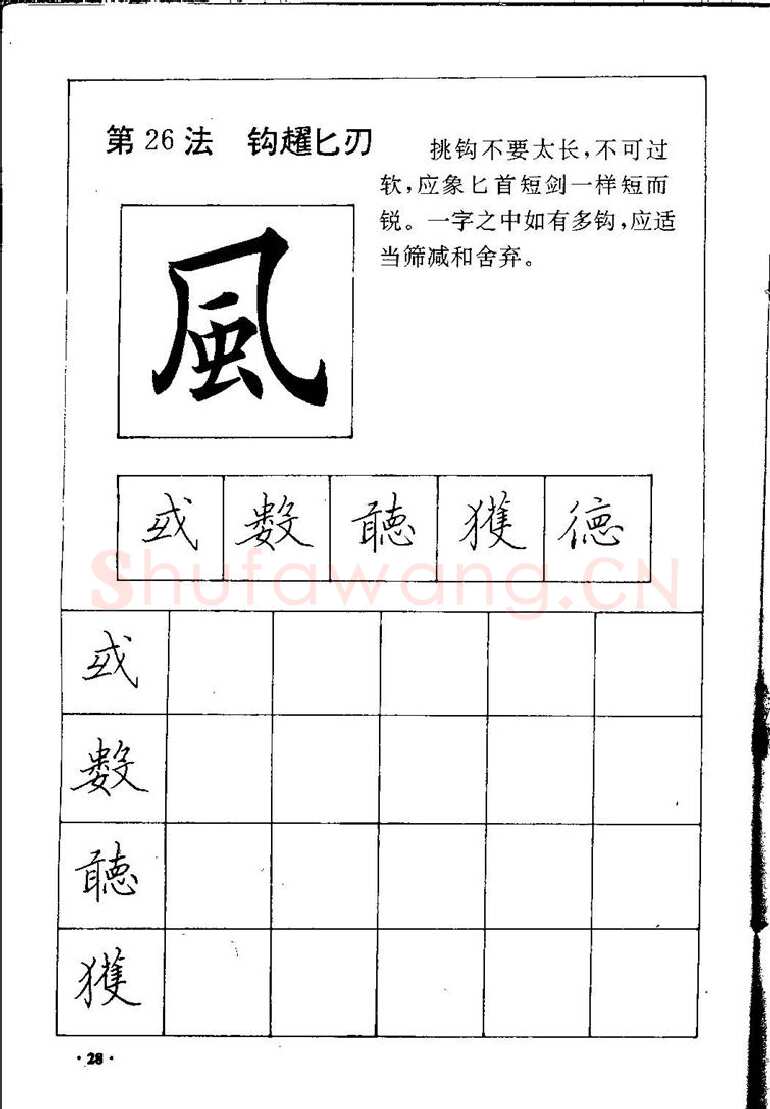 第26法 钩趯匕刃
挑钩不要太长，不可过
软，应象匕首短剑一样短而
锐。一字之中如有多钩，应适
当筛减和舍弃。
風
或 數 聽 獲 德
Shufawang.CN
或
數
聽
獲
·28·